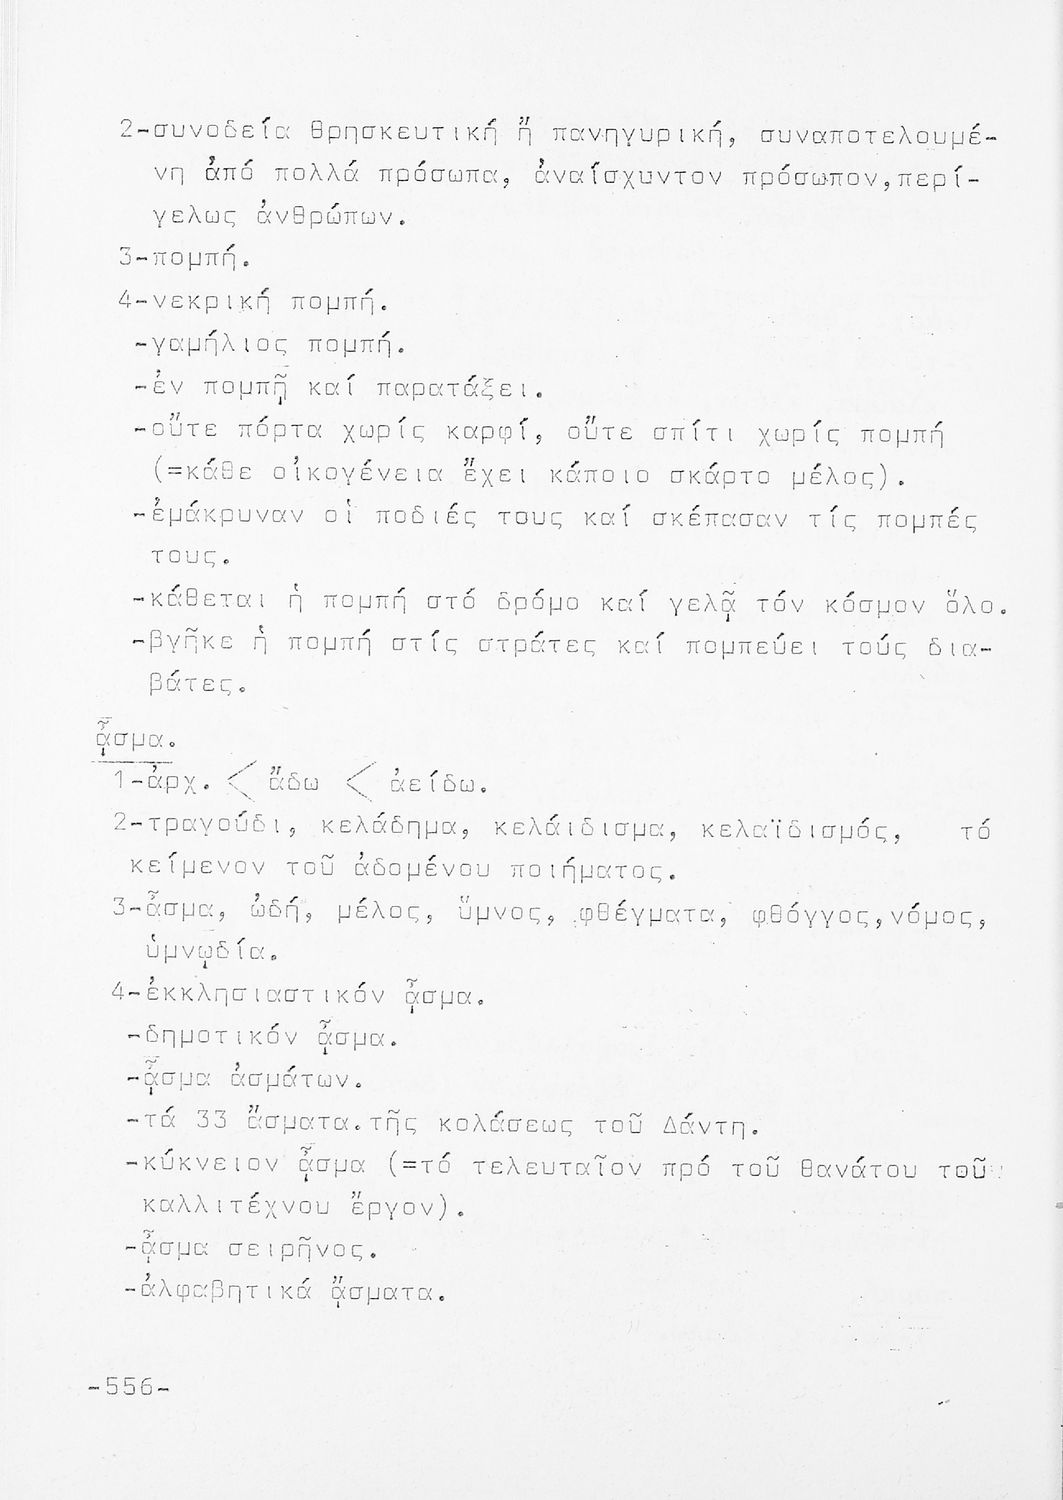 2-συνοδεία θρησκευτική ἤ πανηγυρική, συναποτελουμέ-
νη ἀπό πολλά πρόσωπα, ἀναίσχυντον πρόσωπον,περί-
γελως ἀνθρώπων.
3-πομπή.
4-νεκρική πομπή.
-γαμήλιος πομπή.
-ἐν πομπῇ καί παρατάξει.
-οὔτε πόρτα χωρίς καρφί, οὔτε σπίτι χωρίς πομπή
(=κάθε οἰκογένεια ἔχει κάποιο σκάρτο μέλος).
-ἐμάκρυναν οἱ ποδιές τους καί σκέπασαν τίς πομπές
τους.
-κάθεται ἡ πομπή στό δρόμο καί γελᾷ τόν κόσμον ὅλο.
-βγῆκε ἡ πομπή στίς στράτες καί πομπεύει τούς δια-
βάτες.
ᾆσμα.
1-ἀρχ. < ἄδω < ἀείδω.
2-τραγούδι, κελάδημα, κελάιδισμα, κελαϊδισμός, τό
κείμενον τοῦ ἀδομένου ποιήματος.
3-ἆσμα, ὠδή, μέλος, ὕμνος, φθέγματα, φθόγγος,νόμος,
ὑμνῳδία.
4-ἐκκλησιαστικόν ᾆσμα.
-δημοτικόν ᾆσμα.
-ᾆσμα ἀσμάτων.
-τά 33 ἄσματα.τῆς κολάσεως τοῦ Δάντη.
-κύκνειον ᾆσμα (=τό τελευταῖον πρό τοῦ θανάτου τοῦ
καλλιτέχνου ἔργον).
-ᾆσμα σειρῆνος.
-ἀλφαβητικά ᾄσματα.
-556-